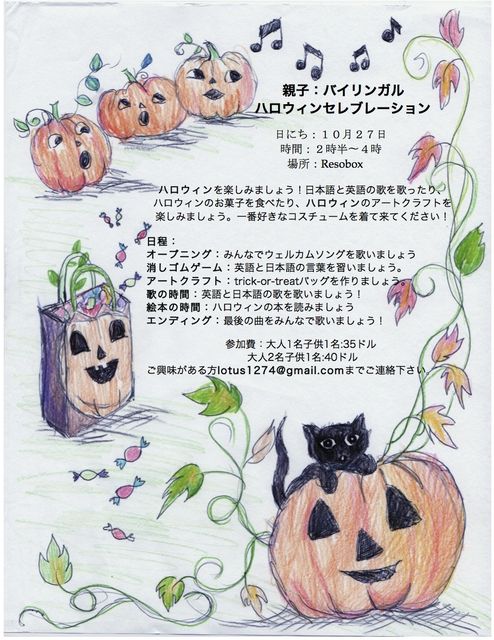 親子：バイリンガル
ハロウィンセレブレーション
日にち：１０月２７日
時間：２時半〜４時
場所：Resobox
ハロウィンを楽しみましょう！日本語と英語の歌を歌ったり、
ハロウィンのお菓子を食べたり、ハロウィンのアートクラフトを
楽しみましょう。一番好きなコスチュームを着て来てください！
日程：
オープニング：みんなでウェルカムソングを歌いましょう
消しゴムゲーム：英語と日本語の言葉を習いましょう。
アートクラフト：trick-or-treatバッグを作りましょう。
歌の時間：英語と日本語の歌を歌いましょう！
絵本の時間：ハロウィンの本を読みましょう
エンディング：最後の曲をみんなで歌いましょう！
参加費：大人1名子供1名:35ドル
大人2名子供1名:40ドル
ご興味がある方lotus1274@gmail.comまでご連絡下さい.